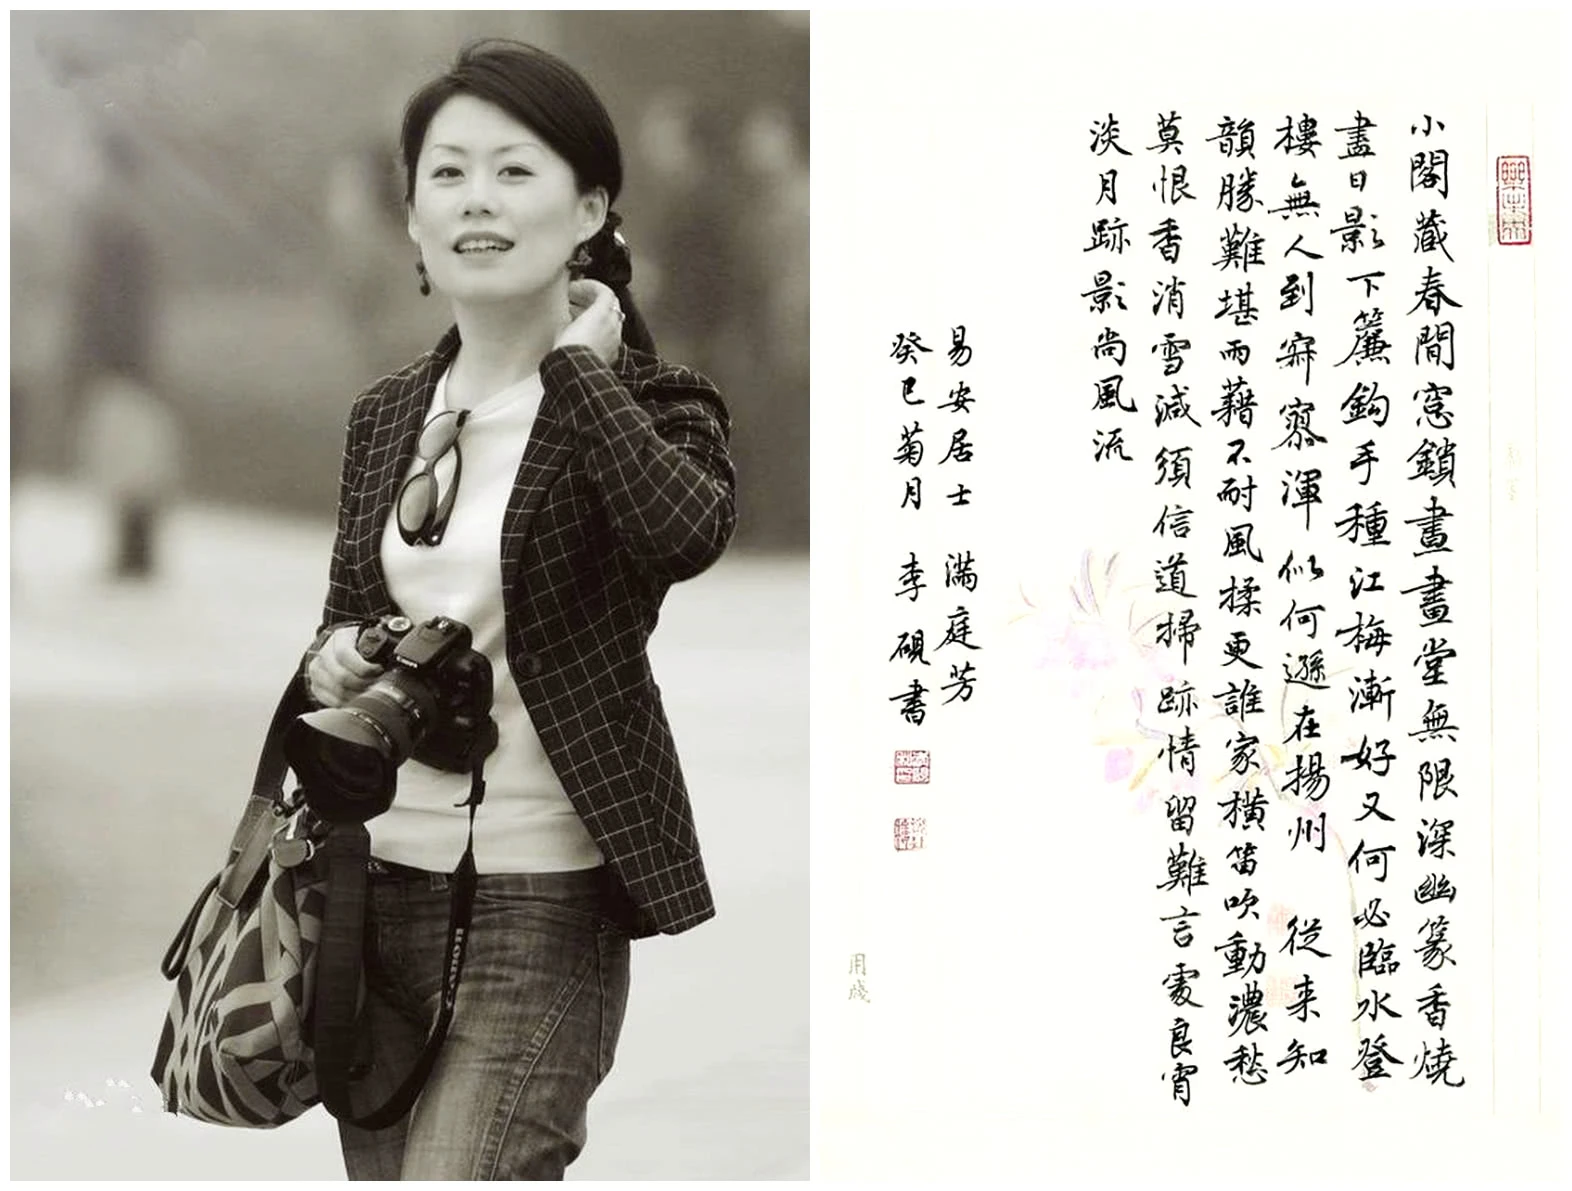 小閣藏春閒窓鎖晝畫堂無限深幽篆香燒
盡日影下簾鈎手種江梅漸好又何必臨水登
樓無人到寂寥渾似何遜在揚州 從来知
韻勝難堪雨藉不耐風揉更誰家橫笛吹動濃愁
莫恨香消雪減須信道掃跡情留難言處良宵
淡月疎影尚風流
易安居士 满庭芳
癸巳菊月 李硯書
用牋
Canon
Canon